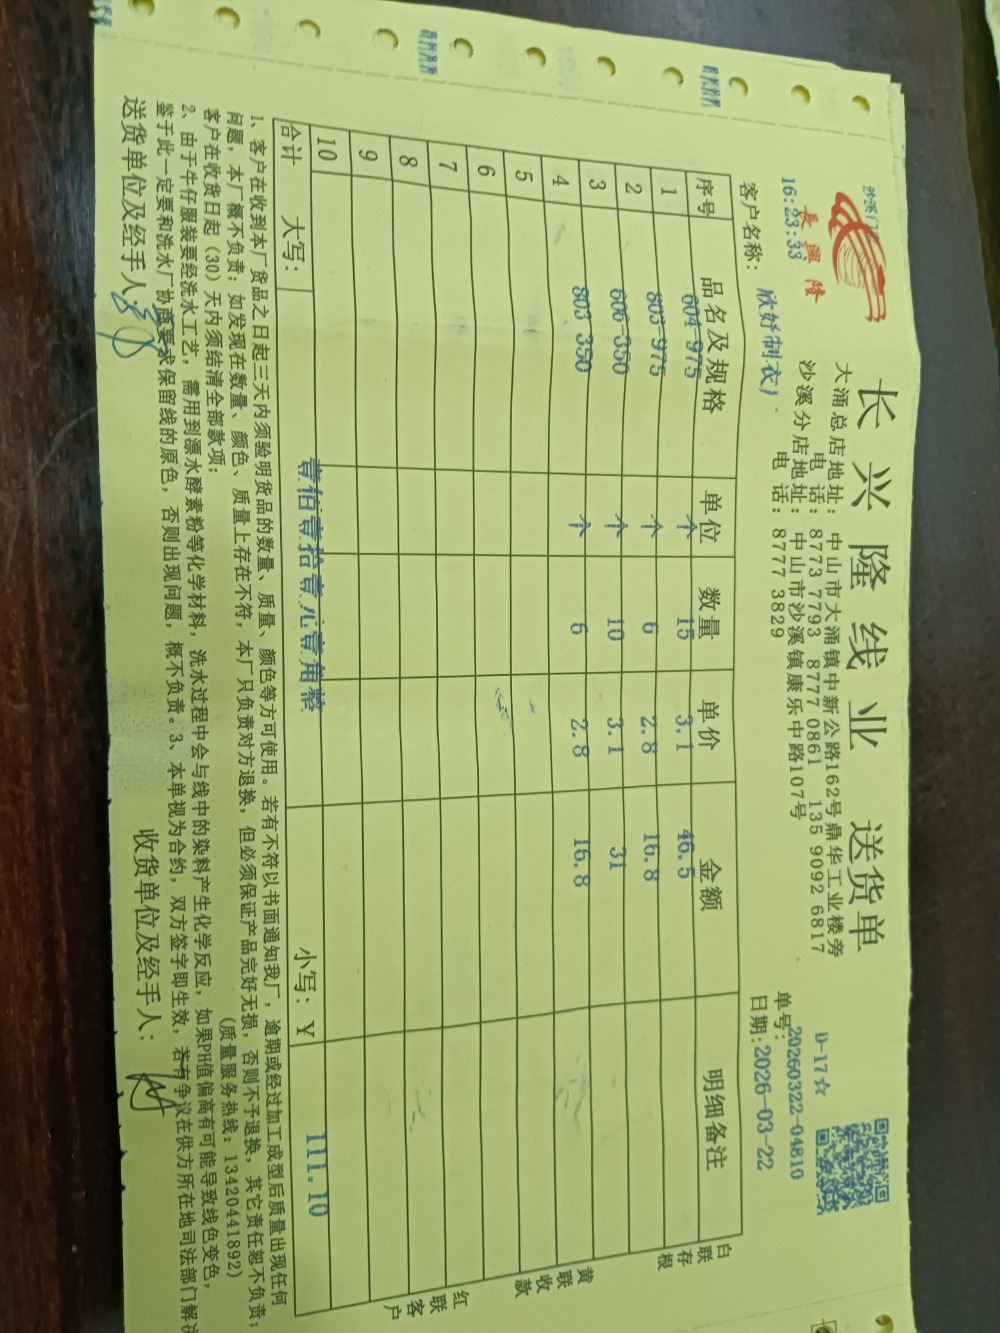 長興隆
长兴隆线业 送货单
D-17☆
大涌总店地址：中山市大涌镇中新公路162号鼎华工业楼旁
电 话：8773 7793 8777 0861 135 9092 6817
沙溪分店地址：中山市沙溪镇康乐中路107号
电 话：8777 3829
16:23:33
单号：20260322-04810
客户名称：欣好制衣厂
日期：2026-03-22
序号 品名及规格 单位 数量 单价 金额 明细备注
1 604-975 个 15 3.1 46.5
2 803-975 个 6 2.8 16.8
3 606-350 个 10 3.1 31
4 803 350 个 6 2.8 16.8
5
6
7
8
9
10
合计 大写：壹佰壹拾壹元壹角整 小写：￥ 111.10
白联存根
黄联收款
红联客户
1、客户在收到本厂货品之日起三天内须验明货品的数量、质量、颜色等方可使用。若有不符以书面通知我厂，逾期或经过加工成型后质量出现任何
问题，本厂概不负责；如发现在数量、颜色、质量上存在不符，本厂只负责对方退换，但必须保证产品完好无损，否则不予退换，其它责任恕不负责；
客户在收货日起（30）天内须结清全部款项；
（质量服务热线：13420441892）
2、由于牛仔服装要经洗水工艺，需用到漂水酵素粉等化学材料，洗水过程中会与线中的染料产生化学反应，如果PH值偏高有可能导致线色变色，
鉴于此一定要和洗水厂协商要求保留线的原色，否则出现问题，概不负责。3、本单视为合约，双方签字即生效，若有争议在供方所在地司法部门解决
送货单位及经手人：
收货单位及经手人：